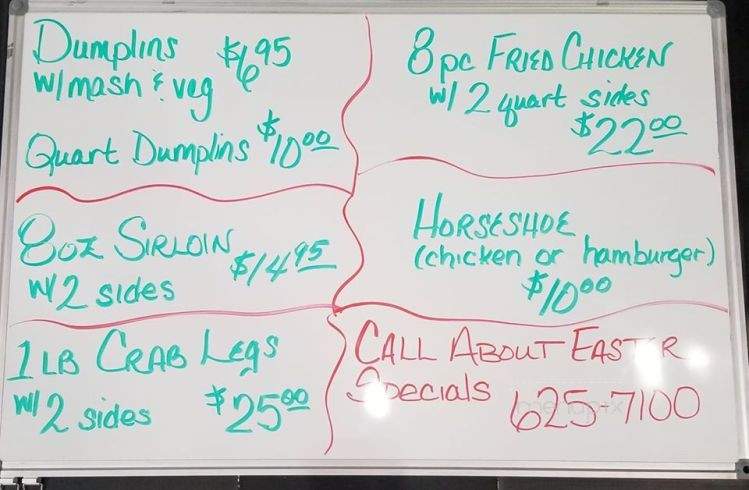 Dumplins $6.95
w/mash & veg
Quart Dumplins $10.00
8oz SIRLOIN
w/2 sides $14.95
1 LB CRAB LEGS
w/2 sides $25.00
8pc FRIED CHICKEN
w/ 2 quart sides
$22.00
HORSESHOE
(chicken or hamburger)
$10.00
CALL ABOUT EASTER
Specials 625-7100